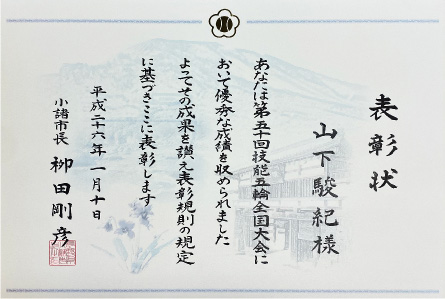 表彰状
山下駿紀様
あなたは第五十回技能五輪全国大会に
おいて優秀な成績を収められました
よってその成果を讃え表彰規則の規定
に基づきここに表彰します
平成二十六年一月十日
小諸市長 柳田剛彦